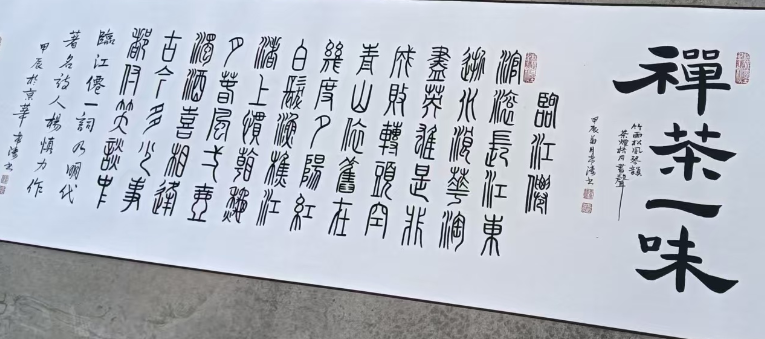 禪茶一味
竹雨松風琴韻
茶煙梧月書聲
臨江僊
滾滾長江東
逝水浪華淘
盡英雄是非
成敗轉頭空
青山依舊在
幾度夕陽紅
白髮漁樵江
渚上慣看穐
月春風一壺
濁酒喜相逢
古今多少事
都付笑談中
臨江僊一詞乃明代
著名詩人楊慎力作
甲辰於京華